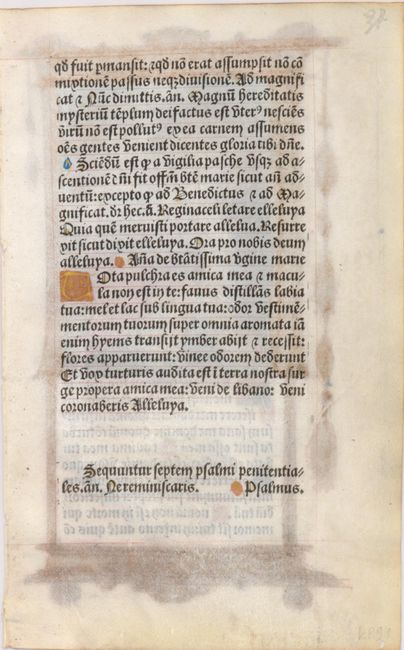 qd fuit ꝑmansit: ⁊ qd nō erat assumpsit nō cō
mixtionē passus neqꝫ diuisionē. Ad magnifi
cat ⁊ Nūc dimittis. añ. Magnū hereditatis
mysteriū tēplum dei factus est vterꝰ nesciēs
virū nō est pollutꝰ ex ea carnem assumens
oēs gentes venient dicentes gloria tibi dñe.
Sciēdū est ꝙ a vigilia pasche vsqꝫ ad a-
scentionē dñi fit offm btē marie sicut añ ad-
uentū: excepto ꝙ ad Benedictus ⁊ ad Ma-
gnificat. dr hec. ā. Regina celi letare elleluya
Quia quē meruisti portare allelua. Resurre
xit sicut dixit elleluya. Ora pro nobis deum
alleluya. Aña de btātissima vgine marie
Tota pulchra es amica mea ⁊ macu-
la non est in te: fauus distillās labia
tua: mel et lac sub lingua tua: odor vestimē-
mentorum tuorum super omnia aromata iā
enim hyems transijt ymber abijt ⁊ recessit:
flores apparuerunt: vinee odorem dederunt
Et vox turturis audita est ī terra nostra sur
ge propera amica mea: veni de libano: veni
coronaberis Alleluya.
Sequuntur septem psalmi penitentia-
les. añ. Ne reminiscaris. Psalmus.